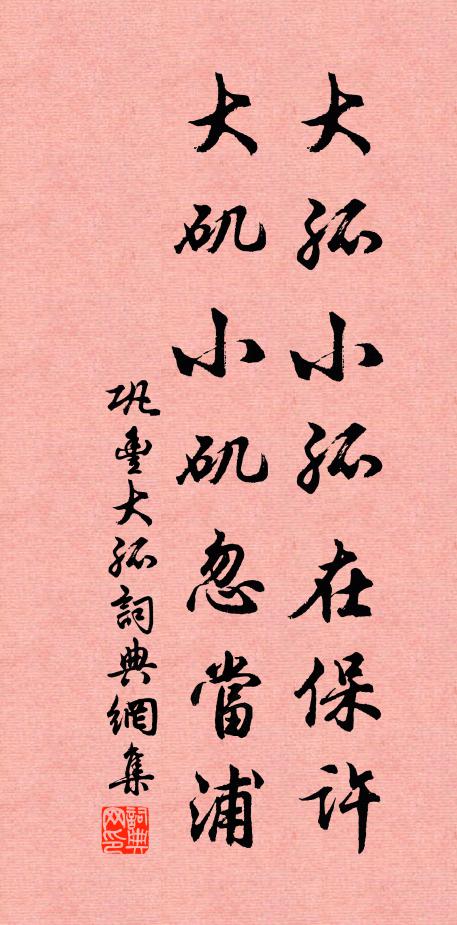 大孤小孤在保許
大矶小矶忽當浦
巩豐大孤詞典網集
詞典网印